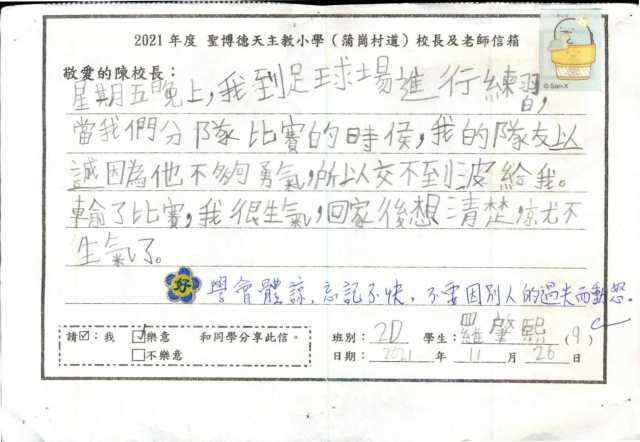 2021 年度 聖博德天主教小學 (蒲崗村道) 校長及老師信箱
© San-X
敬愛的陳校長：
星期五晚上，我到足球場進行練習，
當我們分隊比賽的時侯，我的隊友以
誠因為他不夠勇氣，所以交不到波給我。
輸了比賽，我很生氣，回家後想清楚，就不
生氣了。
好 學會體諒，忘記不快，不要因別人的過失而動怒。
請☑：我 ☑樂意 和同學分享此信。
□不樂意
班別：2D 學生：羅肇熙 (9)
日期：2021 年 11 月 26 日